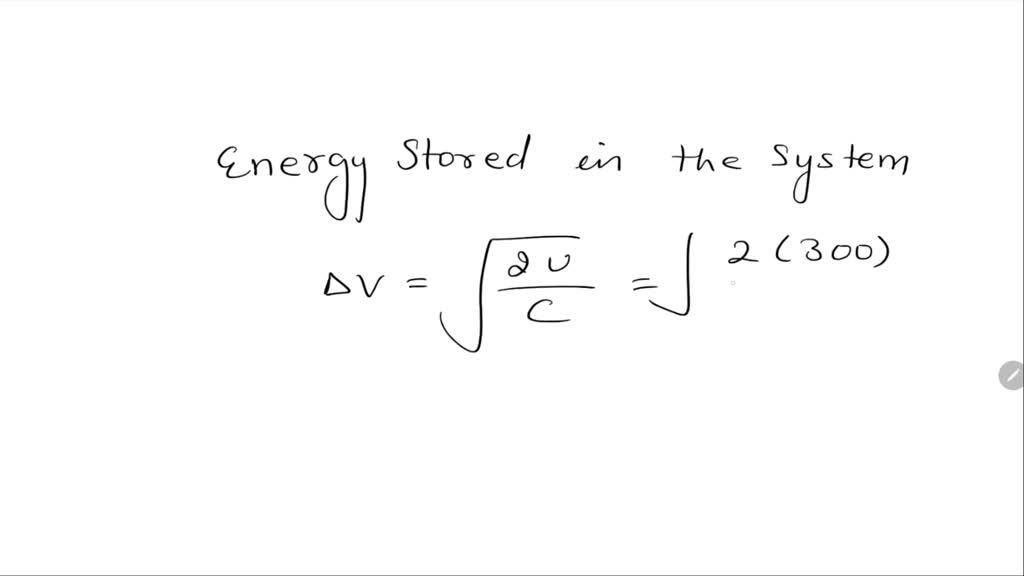 Energy Stored in the System
ΔV = √(2U/C) = √ 2(300)